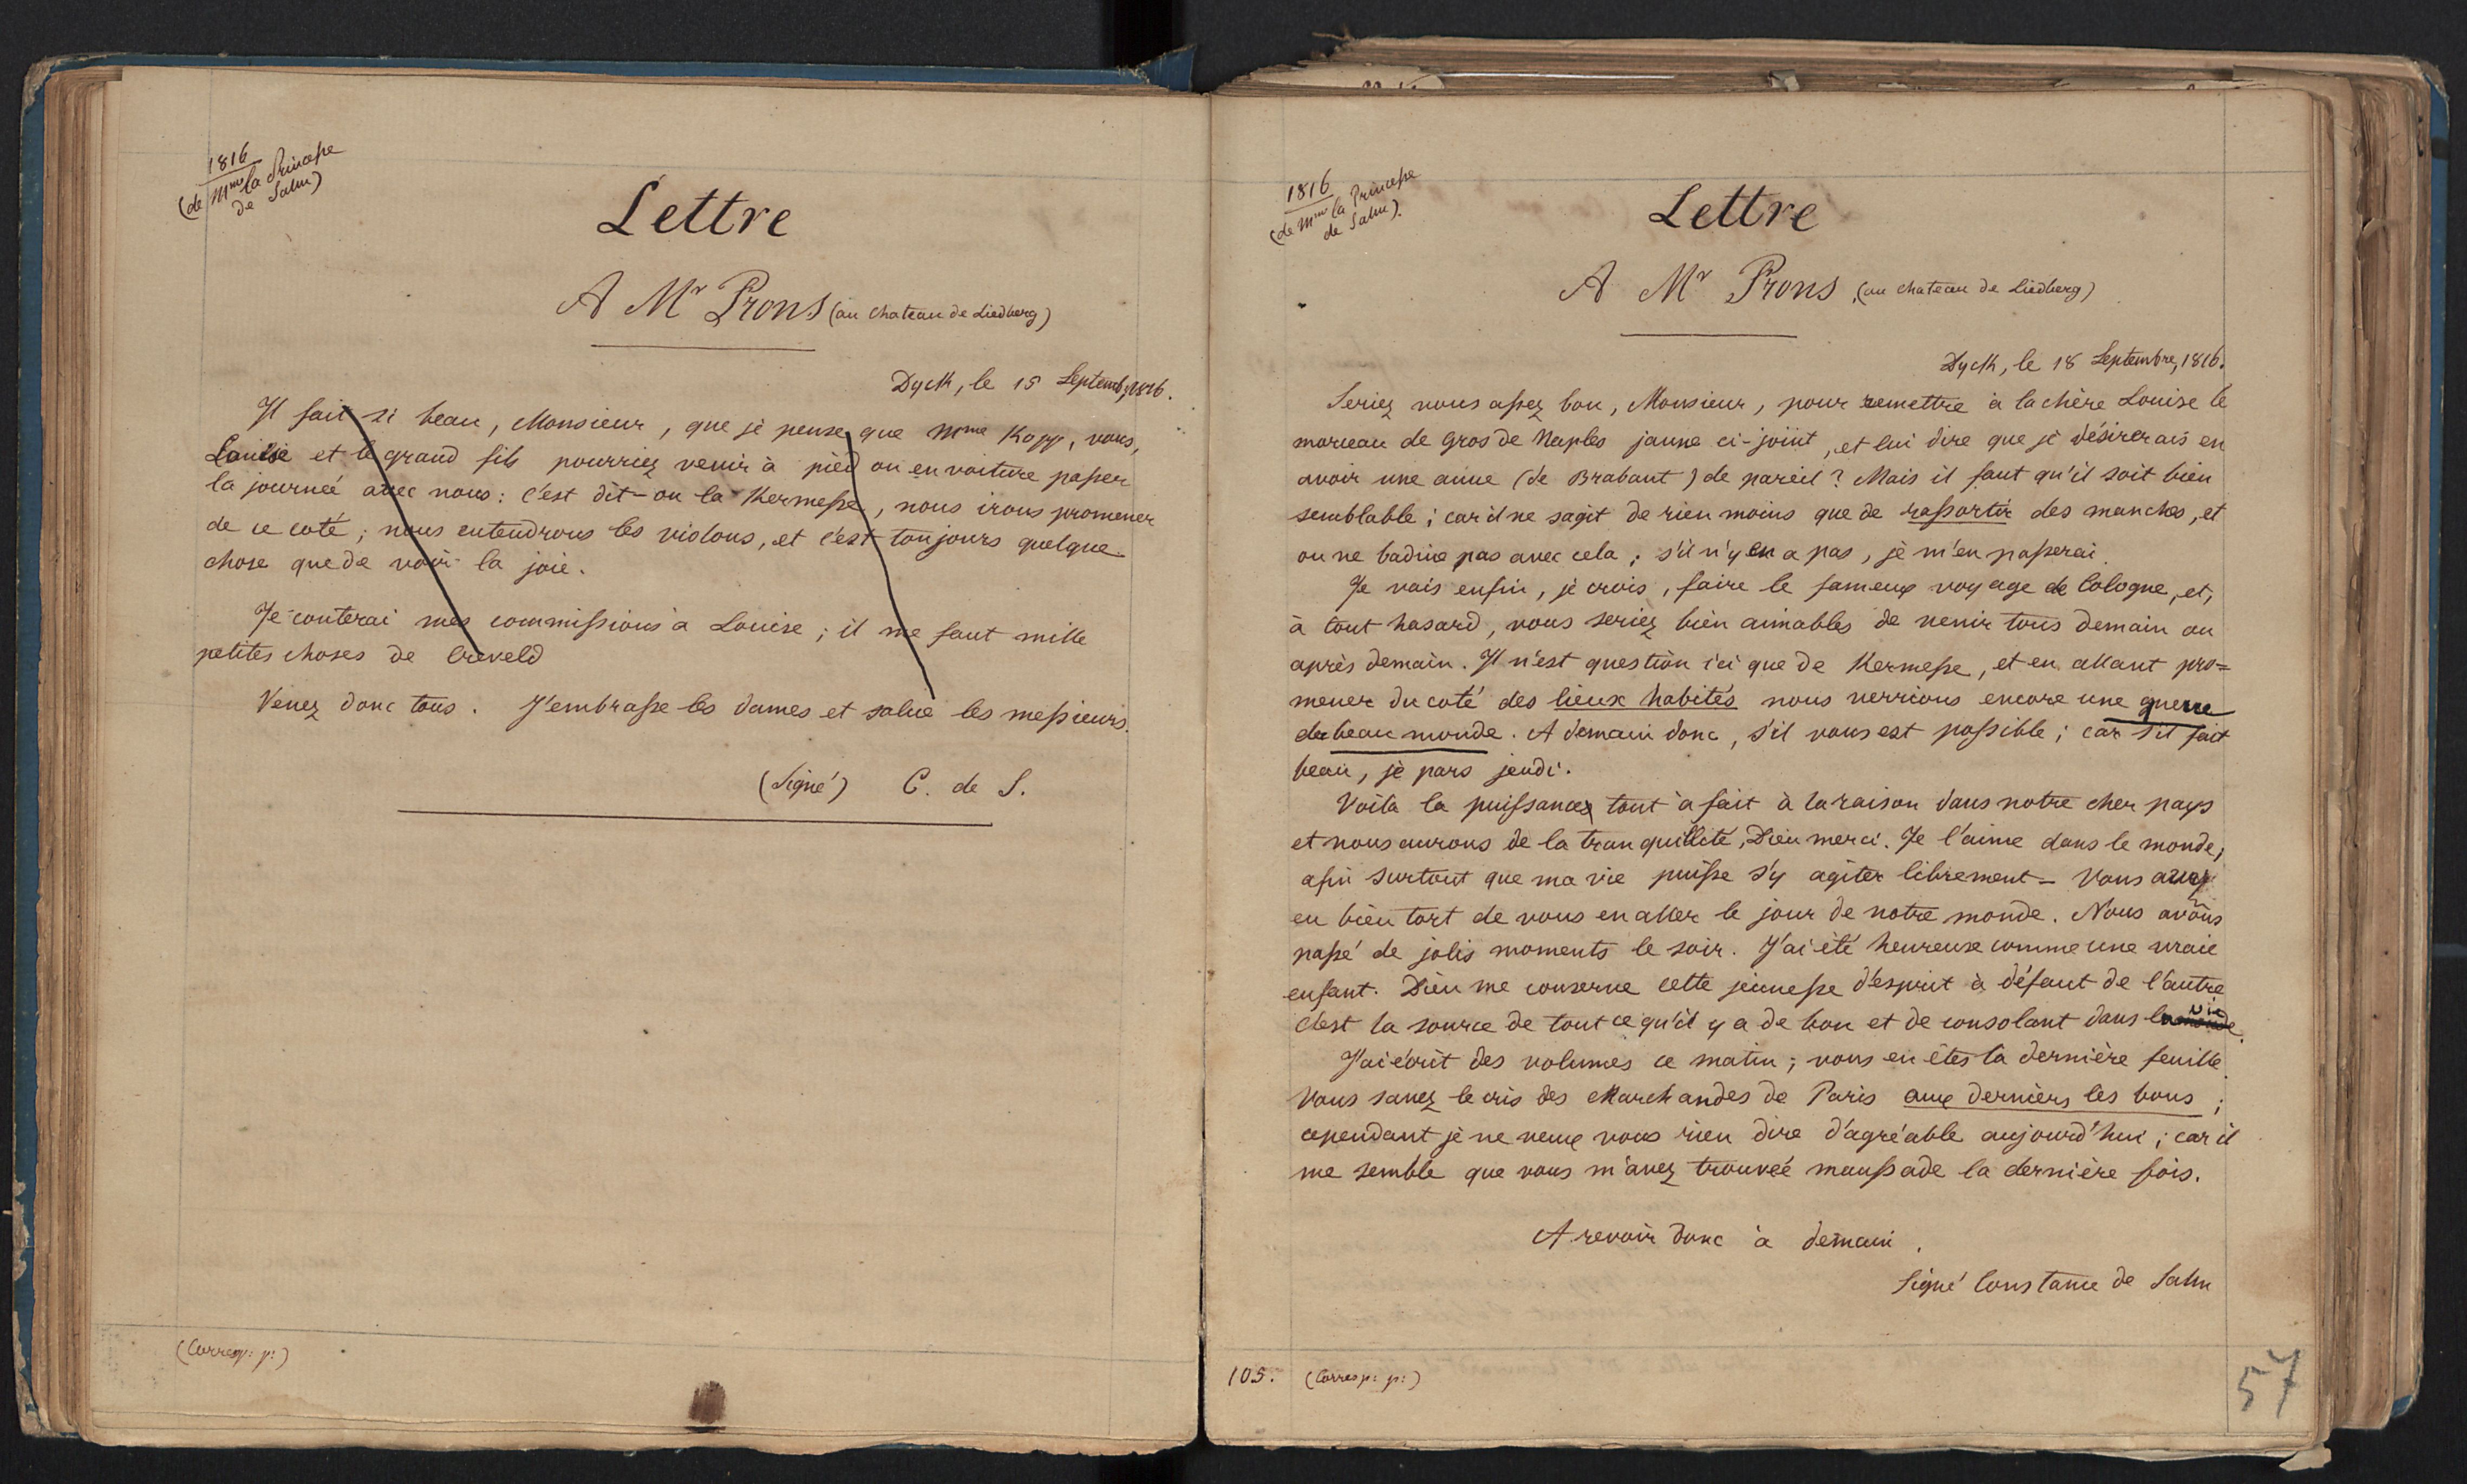 1816
(de Mme la Princesse
de Salm)
Lettre
A Mr Prons (au chateau de Liedberg)
Dyck, le 15 Septemb, 1816.
Il fait si beau, Monsieur, que je pense que Mme Kopp, vous,
Louise et le grand fils pourriez venir à pied ou en voiture passer
la journeé avec nous: c'est dit-on la Kermesse, nous irons promener
de ce coté; nous entendrons les violons, et c'est toujours quelque
chose que de voir la joie.
Je conterai mes commissions à Louise; il me faut mille
petites choses de Creveld
Venez donc tous. J'embrasse les dames et salue les messieurs.
(Signé) C. de S.
(Corresp: p:)
1816
(de Mme la Princesse
de Salm).
Lettre
A Mr Prons, (au chateau de Liedberg)
Dyck, le 18 Septembre, 1816.
Seriez vous assez bon, Monsieur, pour remettre à la chère Louise le
morceau de gros de Naples jaune ci-joint, et lui dire que je désirerais en
avoir une aune (de Brabant) de pareil? Mais il faut qu'il soit bien
semblable; car il ne sagit de rien moins que de rassortir des manches, et
on ne badine pas avec cela; s'il n'y en a pas, je m'en passerai.
Je vais enfin, je crois, faire le fameux voyage de Cologne, et,
à tout hasard, vous seriez bien aimables de venir tous demain ou
après demain. Il n'est question ici que de Kermesse, et en allant pro=
mener du coté des lieux habités nous verrions encore une queue
du beau monde. A demain donc, s'il vous est possible; car s'il fait
beau, je pars jeudi.
Voila la puissance tout à fait à la raison dans notre cher pays
et nous aurons de la tranquillité, Dieu merci. Je l'aime dans le monde,
afin surtout que ma vie puisse s'y agiter librement - Vous avez
eu bien tort de vous en aller le jour de notre monde. Nous avons
passé de jolis moments le soir. J'ai été heureuse comme une vraie
enfant. Dieu me conserve cette jeunesse d'esprit à défaut de l'autre
c'est la source de tout ce qu'il y a de bon et de consolant dans la vie.
J'ai écrit des volumes ce matin; vous en êtes la dernière feuille.
Vous savez le cris des Marchandes de Paris aux derniers les bons;
cependant je ne veux vous rien dire d'agréable aujourd'hui; car il
me semble que vous m'avez trouveé maussade la dernière fois.
A revoir donc à demain.
Signé Constance de Salm
105. (Corresp: p:)
57